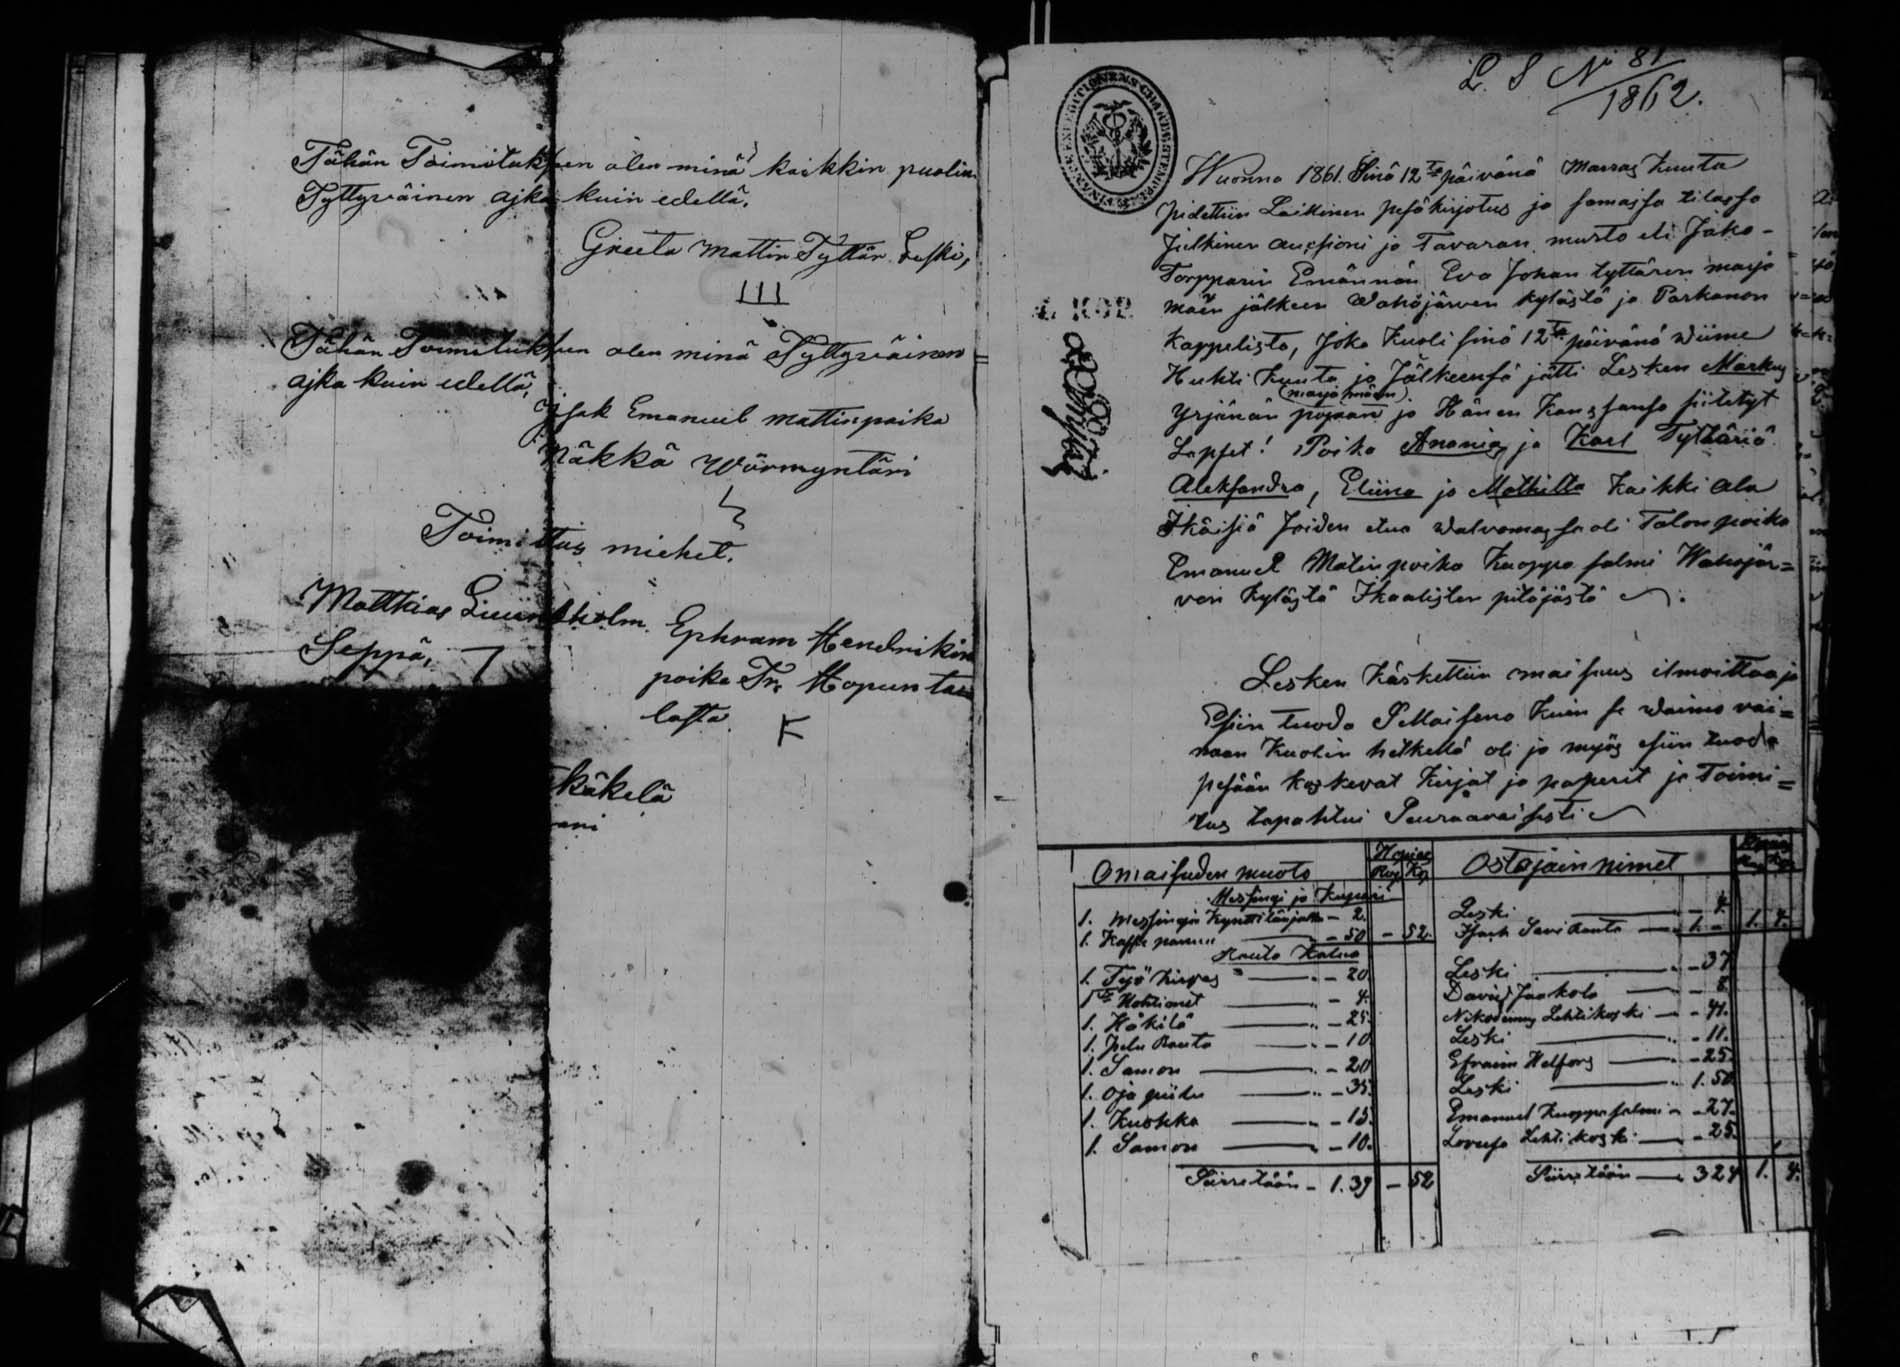 Tähän Toimituksen olen minä kaikkin puolin
Tyttyväinen ajka kuin edellä.
Greeta Mattin Tyttär Leski,
Tähän Toimituksen olen minä Tyttyväinen
ajka kuin edellä,
Isak Emanuel Mattinpoika
Näkkä Wörmyntäri
Toimitus miehet.
Matthias Liundholm
Seppä,
Ephram Hendrikin
poika Tr. Hopun tau
lasta
käkelä
L. S No 81/1862.
4. KOP.
Wuonna 1861. Sinä 12ta päivänä Marras Kuuta
pidettiin Laillinen pesäkirjotus ja samassa tilassa
Julkinen auchsioni ja Tavaran muoto eli Jako-
Torpparin Emännän Eva Johan tyttären marja
mäen jälkeen Wahojärven kylästä ja Parkanon
Kappelista, Joka Kuoli sinä 12ta päivänä wiime
Huhti Kuuta ja Jälkeensä jätti Lesken Markus
(marja mäen)
Yrjänän pojaan ja Hänen Kanssansa siitetyt
Lapset! Poika Ananias ja Karl Tyttäriä
Aleksandra, Eliina ja Mathilta Kaikki ala
Ikäisiä Joiden etua walvomassa oli Talonpoika
Emanuel Matinpoika Kuoppa salmi Wahojär=
ven Kylästä Ikaalisten pitäjästä
Lesken Käskettiin omaisuus ilmoittaa ja
Esiin tuoda Sellaisena Kuin se waimo vai=
naan Kuolin hetkellä oli ja myös esiin tuoda
pesään koskevat Kirjat ja paperit ja Toimi=
tus tapahtui Seuraavaisesti
Omaisuden muoto Hopias Rup Ko Ostajain nimet
Messingi ja Kupari
1. Messingin Kynttilänjalka - 2. Leski - 4.
1. Kaffe pannu - 50 - 52. Isack Savi Ranta 1. - 1. 4.
Rauta Kalua
1. Työ kirves - 20 Leski - 37
1 Hohtimet - 4. David Jaakola - 8.
1. Häkilä - 25. Nikodemus Lehtikoski - 41.
1. Rauta - 10 Leski - 11.
1. Samon - 20 Efraim Helfors - 25.
1. Oja piilu - 35. Leski 1. 50
1. Kuokka - 15. Emanuel Kuoppasalmi - 27.
1. Samon - 10. Lovisa Lehtikoski - 25.
Siirretään - 1. 39 - 52 Siirretään 3 24 1. 4.